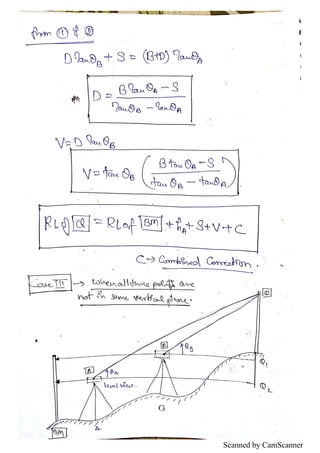 from ① & ②
D tanθB + S = (B+D) tanθA
D = B tanθA - S / tanθB - tanθA
V = D tanθB
V = tanθB ( B tanθA - S / tanθB - tanθA )
RL of Q = RL of BM + hA + S + V + C
C → Combined Correction.
Case III → When all three points are
not in same vertical plane.
B
θB
A
θA
level view.
Q1
Q2
A
B
BM
Scanned by CamScanner